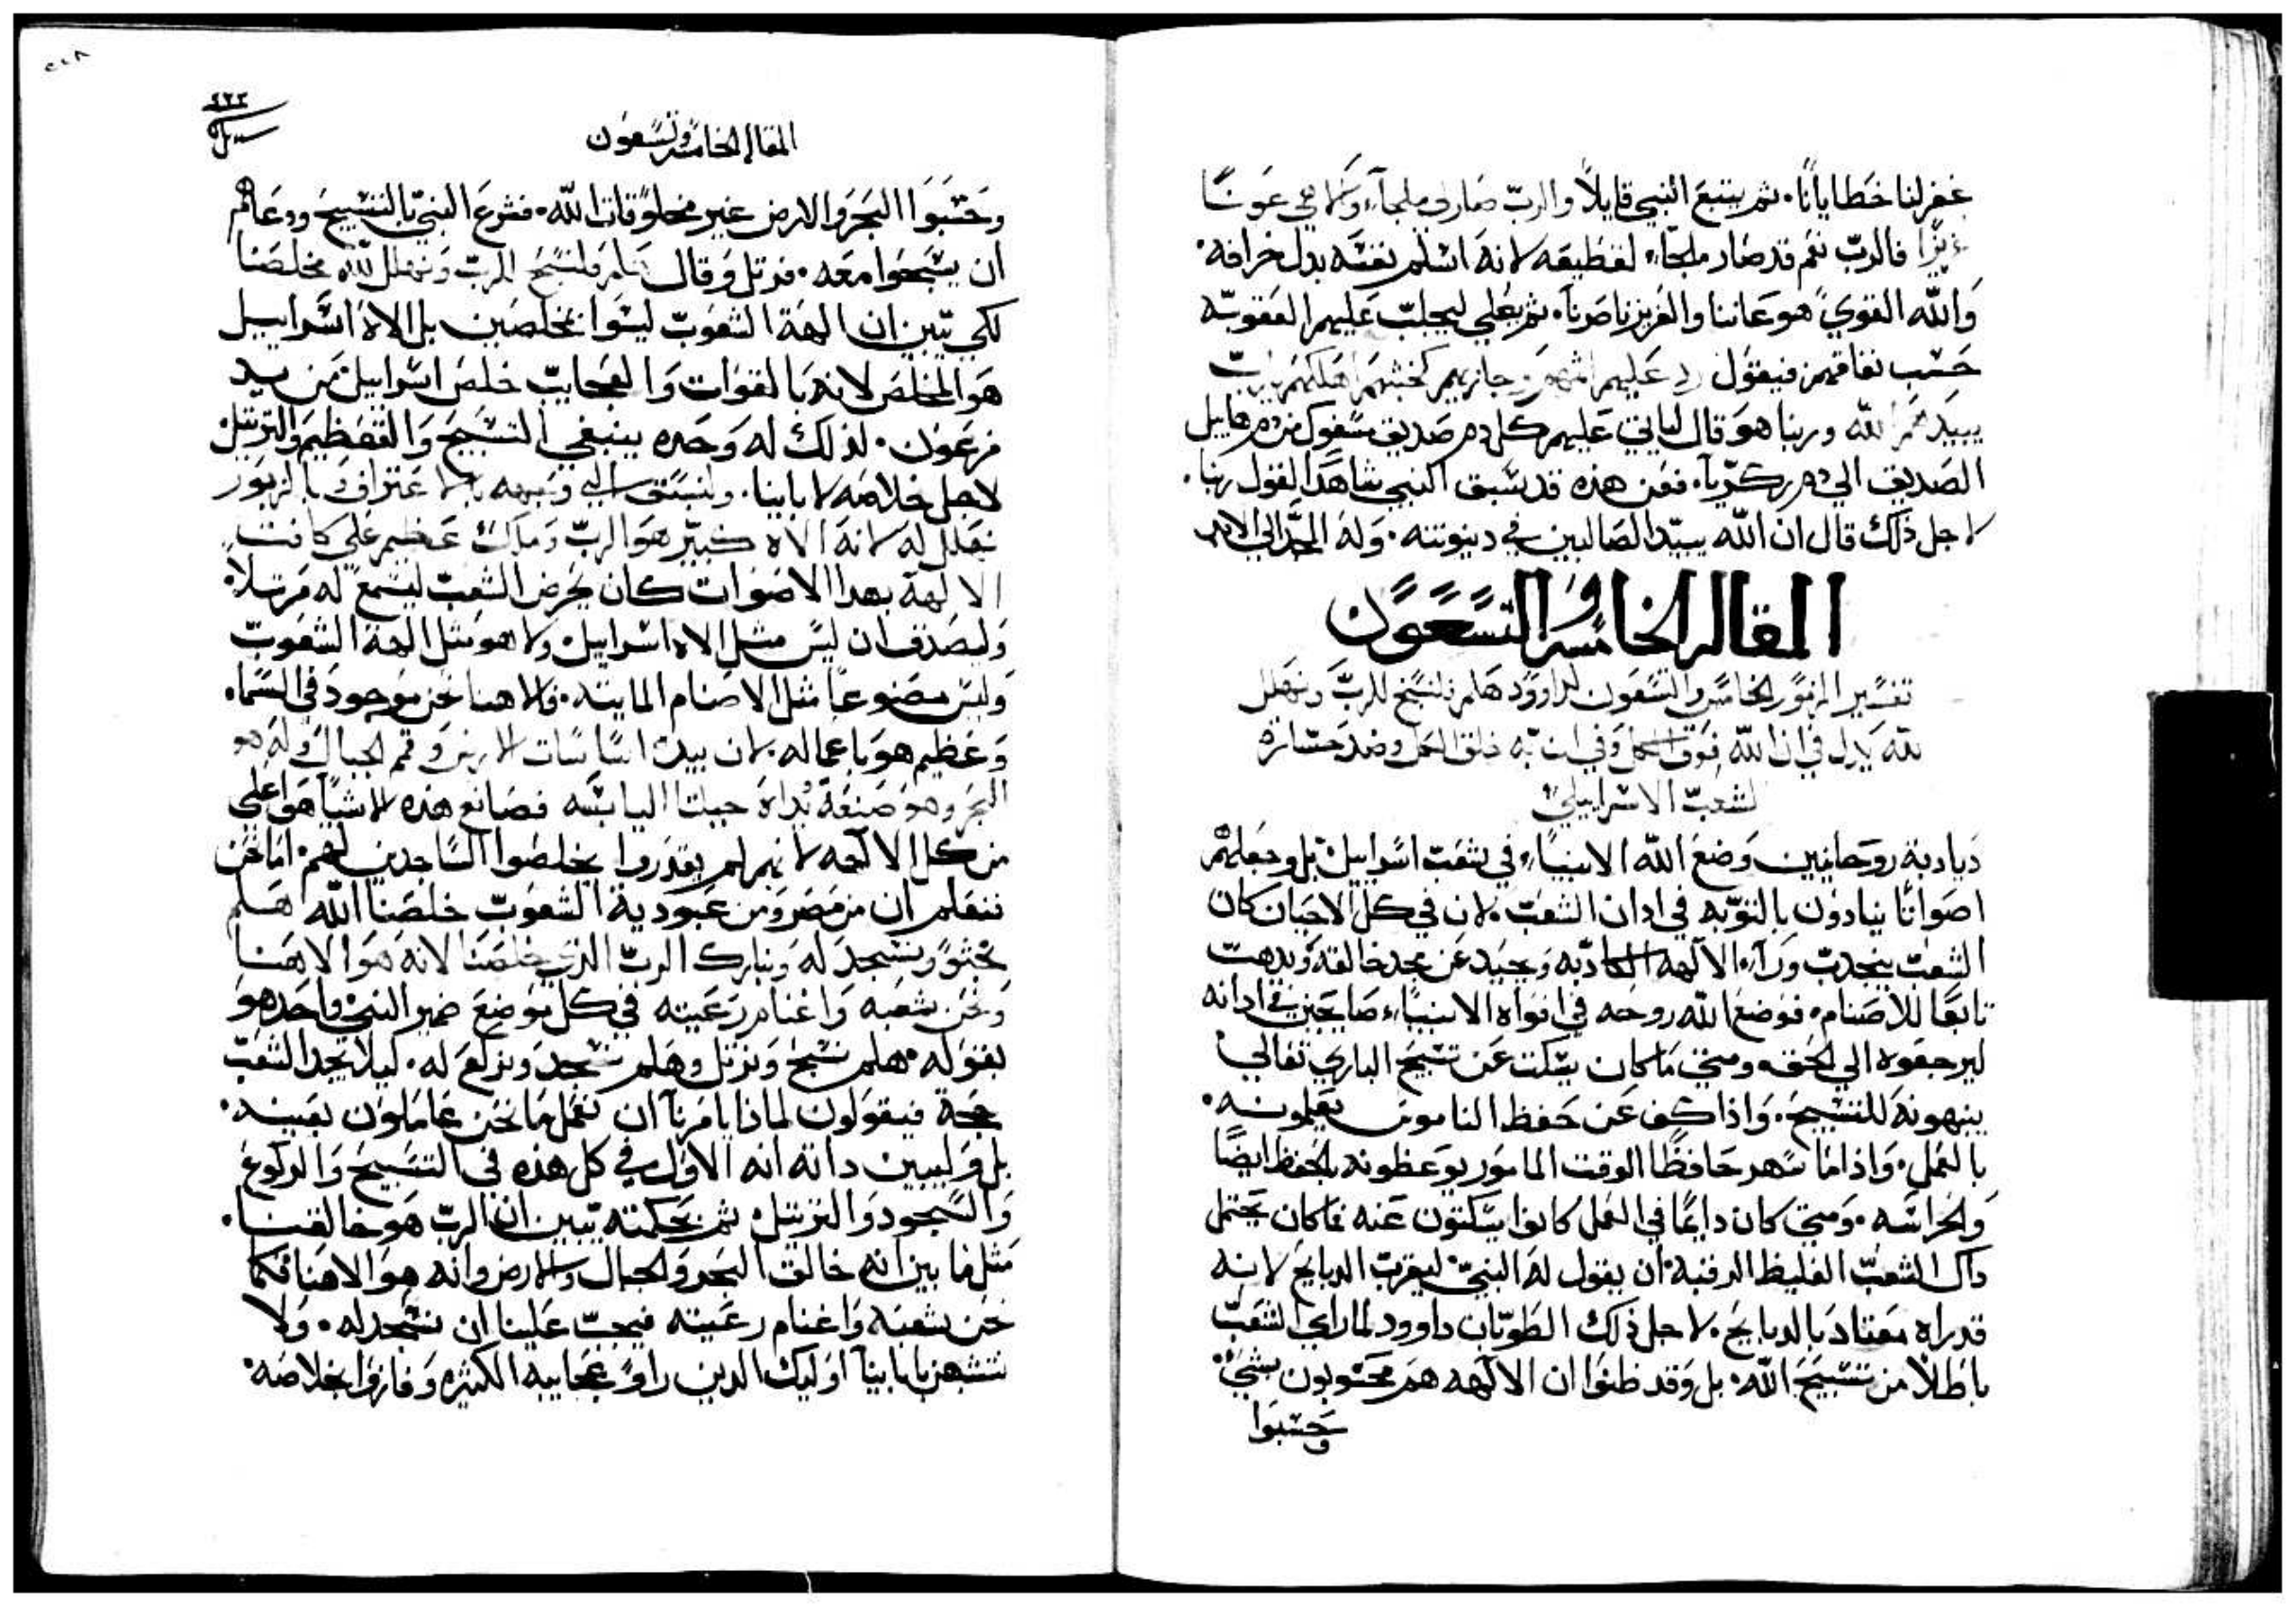 غفر لنا خطايانا. ثم يتبع النبي قايلاً والرب صار لي ملجآء والاهي عونًا
فالرب نعم قد صار ملجاء لقطيعه لانه اسلم نفسه بدل خرافه.
والله القوي هو عاننا والعزيز ناصرنا. ثم يعلي ليجلب عليهم العقوبه
حسب نفاقهم فيقول رد عليهم اثمهم وجازيهم كخبثهم اهلكهم يارب
يبيدهم الله وربنا هو قال لياتي عليهم كل دم صديق مسفوك من دم هابيل
الصديق الي دم زكريا. فعن هذه قد سبق النبي شاهدًا لقول ربنا.
لاجل ذلك قال ان الله يبيد الضالين في دينونته. وله المجد الي الابد
المقاله الخامسه والتسعون
تفسير المزمور الخامس والتسعون لداوود هلم نسبح للرب ونهلل
لله يدل في ان الله فوق الكل وفي انه خلق الكل وضد جسارة
لشعب الاسراييلي
ديادبة روحانيين وضع الله الانبياء في شعب اسراييل بل وجعلهم
اصواتًا ينادون بالتوبه في ادان الشعب. لان في كل الاحيان كان
الشعب ينجدب ورآء الالهه الكادبه ويحيد عن مجد خالقه ويدهب
تابعًا للاصنام. فوضع الله روحه في افواه الانبياء صايحين في ادانه
ليرجعوه الي الحق. ومتي ما كان يسكت عن تسبيح الباري تعالي
ينبهونه للتسبيح. واذا كف عن حفظ الناموس يعلمونه.
بالعمل. واذا ما سهر حافظًا الوقت المامور يوعظونه بالحفظ ايضًا
والحراسه. ومتي كان دايمًا في العمل كانوا يسكتون عنه فما كان يحتمل
داك الشعب الغليظ الرقبه ان يقول له النبي ليقرب الدبايح لانه
قد راه معتاد بالدبايح. لاجل ذلك الطوبان داوود لما راي الشعب
باطلاً من تسبيح الله. بل وقد ظنوا ان الالهه هم محسوبون بشي
وحسبوا
٤٢٣
المقاله الخامسه وتسعون
وحسبوا البحر والارض غير مخلوقات الله. فشرع النبي بالتسبيح ودعاهم
ان يسبحوا معه. فرتل وقال هلم فلنسبح للرب ونهلل لله مخلصنا
لكي تبين ان الهة الشعوب ليسوا مخلصين بل الاه اسراييل
هو المخلص لانه بالقوات والعجايب خلص اسراييل من يد
فرعون. لذلك له وحده ينبغي التسبيح والتعظيم والترتيل
لاجل خلاصه لاباينا. ولنسبق الي وجهه بالاعتراف وبالزبور
نهلل له لانه الاه كبير هو الرب وملك عظيم علي كافت
الالهة بهدا الاصوات كان يحرض الشعب ليسمع له مرتلاً.
وليصدق ان ليس مثل الاه اسراييل ولا هو مثل الهة الشعوب
وليس مصنوعًا مثل الاصنام المايته. والاهنا نحن موجود في السماء.
وعظيم هو باعماله. لان بيده اساسات الارض وقمم الجبال وله هو
البحر وهو صنعه ويداه جبلتا اليابسه فصانع هذه الاشيا هو اعلي
من كل الالهه لانهم لم يقدروا يخلصوا الساجدين لهم. اما نحن
نتعلم ان من مصر ومن عبودية الشعوب خلصنا الله هلم
نجثو ونسجد له ونبارك الرب الذي خلصنا لانه هو الاهنا
ونحن شعبه واغنام رعيته في كل موضع ضمير النبي واحد هو
بقوله هلم نسبح ونرتل وهلم نسجد ونركع له. كيلا يجد الشعب
حجة فيقولون لماذا يامرنا ان نعمل ما نحن عاملون بعينه.
بل وليبين داته انه الاول في كل هذه في التسبيح والركوع
والسجود والترتيل ثم بحكمته يبين ان الرب هو خالقنا.
مثل ما بين انه خالق البحر والجبال والارض وانه هو الاهنا فكما
نحن شعبه واغنام رعيته فيجب علينا ان نسجد له. ولا
نتشبهن بابابينا اوليك الدين راو عجايبه الكثيره وفازوا بخلاصه.